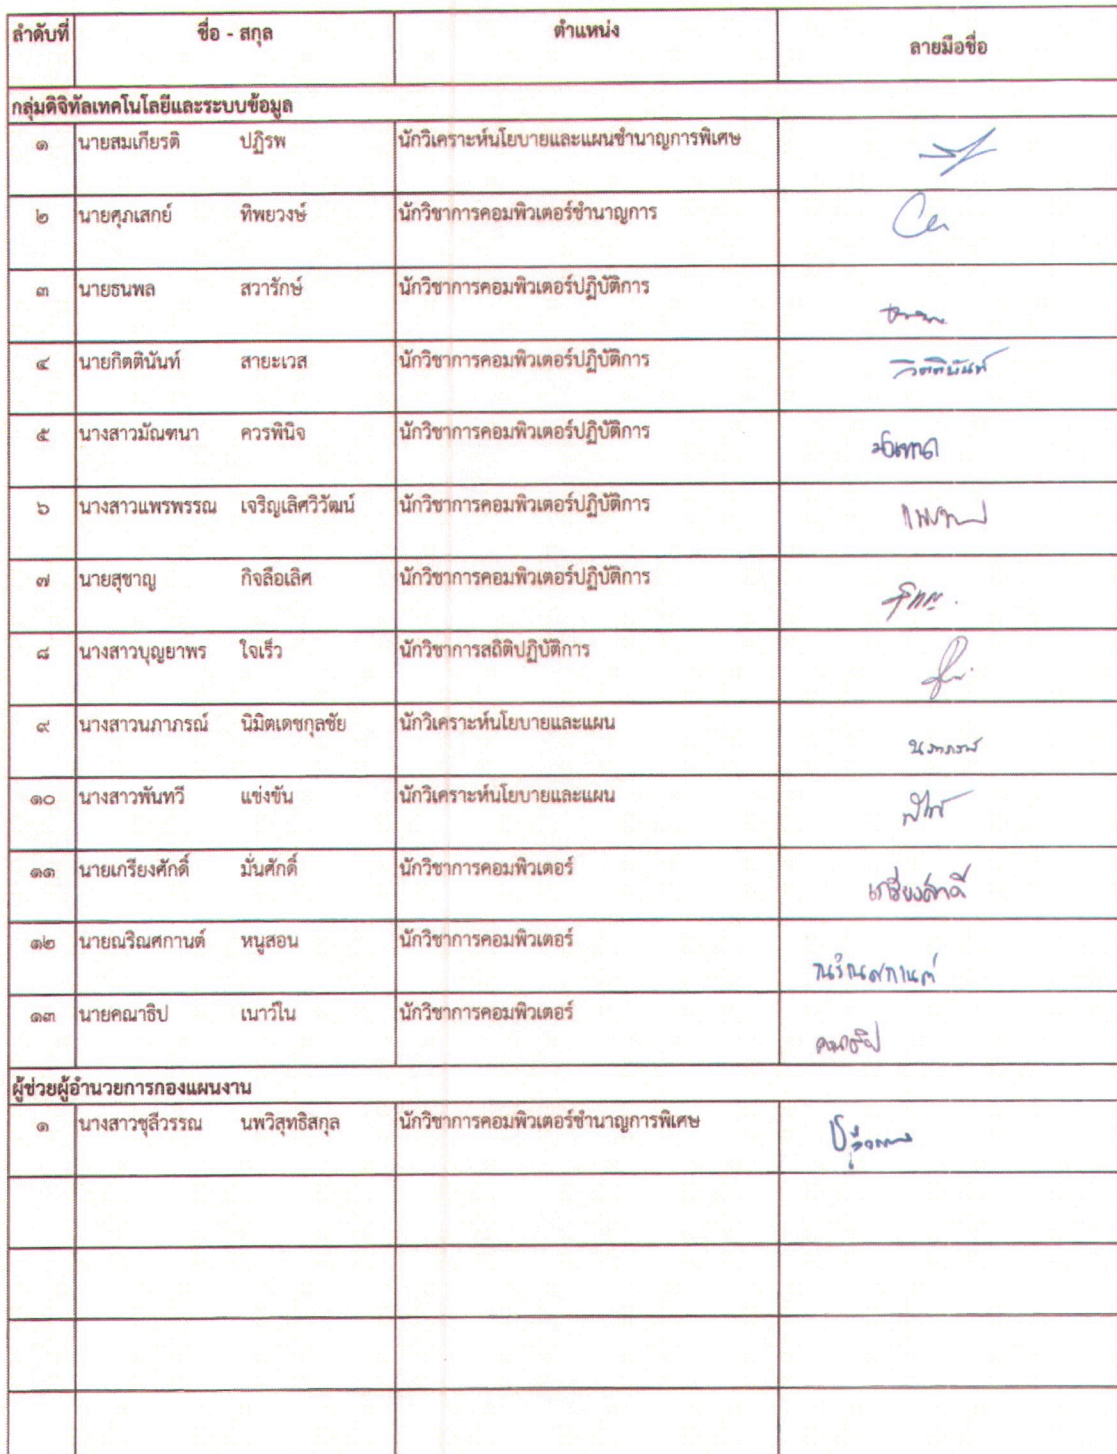 ลำดับที่ ชื่อ - สกุล ตำแหน่ง ลายมือชื่อ
กลุ่มดิจิทัลเทคโนโลยีและระบบข้อมูล
๑ นายสมเกียรติ ปฏิรพ นักวิเคราะห์นโยบายและแผนชำนาญการพิเศษ
๒ นายศุภเสกย์ ทิพยวงษ์ นักวิชาการคอมพิวเตอร์ชำนาญการ
๓ นายธนพล สวารักษ์ นักวิชาการคอมพิวเตอร์ปฏิบัติการ
๔ นายกิตตินันท์ สายะเวส นักวิชาการคอมพิวเตอร์ปฏิบัติการ กิตตินันท์
๕ นางสาวมัณฑนา ควรพินิจ นักวิชาการคอมพิวเตอร์ปฏิบัติการ มัณฑนา
๖ นางสาวแพรพรรณ เจริญเลิศวิวัฒน์ นักวิชาการคอมพิวเตอร์ปฏิบัติการ
๗ นายสุชาญ กิจลือเลิศ นักวิชาการคอมพิวเตอร์ปฏิบัติการ
๘ นางสาวบุญยาพร ใจเร็ว นักวิชาการสถิติปฏิบัติการ
๙ นางสาวนภาภรณ์ นิมิตเดชกุลชัย นักวิเคราะห์นโยบายและแผน นภาภรณ์
๑๐ นางสาวพันทวี แข่งขัน นักวิเคราะห์นโยบายและแผน
๑๑ นายเกรียงศักดิ์ มั่นศักดิ์ นักวิชาการคอมพิวเตอร์ เกรียงศักดิ์
๑๒ นายณริณศกานต์ หนูสอน นักวิชาการคอมพิวเตอร์ ณริณศกานต์
๑๓ นายคณาธิป เนาว์ใน นักวิชาการคอมพิวเตอร์ คณาธิป
ผู้ช่วยผู้อำนวยการกองแผนงาน
๑ นางสาวชุลีวรรณ นพวิสุทธิสกุล นักวิชาการคอมพิวเตอร์ชำนาญการพิเศษ